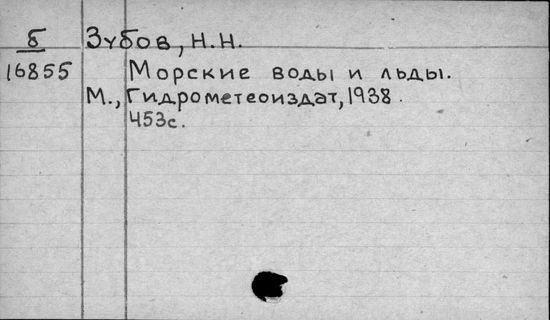 Б
16855
Зубов, Н.Н.
Морские воды и льды.
М., Гидрометеоиздат, 1938.
453с.